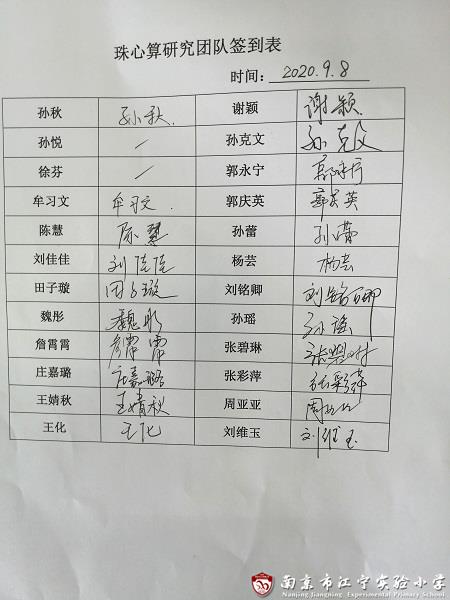 珠心算研究团队签到表
时间: 2020.9.8
孙秋 孙秋. 谢颖 谢颖.
孙悦 / 孙克文 孙克文
徐芬 / 郭永宁 郭永宁
牟习文 牟习文. 郭庆英 郭庆英
陈慧 陈慧 孙蕾 孙蕾
刘佳佳 刘佳佳 杨芸 杨芸
田子璇 田子璇 刘铭卿 刘铭卿
魏彤 魏彤 孙瑶 孙瑶
詹霄霄 詹霄霄 张碧琳 张碧琳
庄嘉璐 庄嘉璐 张彩萍 张彩萍
王婧秋 王婧秋 周亚亚 周亚亚
王化 王化 刘维玉 刘维玉
南京市江宁实验小学
Nanjing Jiangning Experimental Primary School